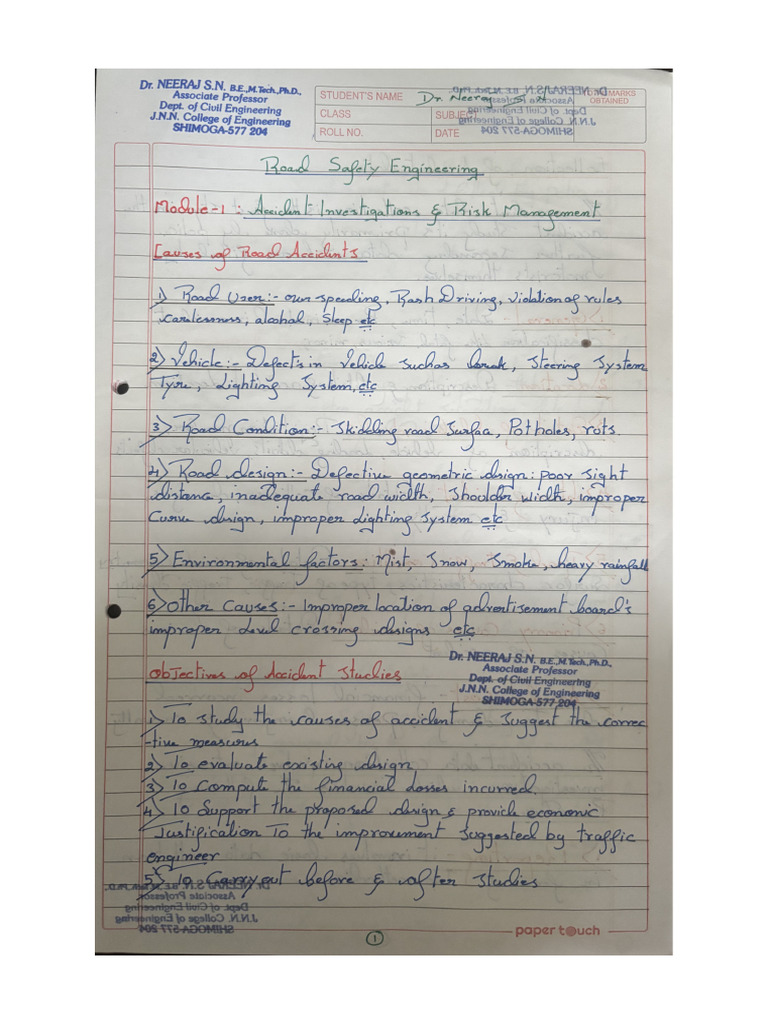 Dr. NEERAJ S.N. B.E.,M.Tech.,Ph.D.,
Associate Professor
Dept. of Civil Engineering
J.N.N. College of Engineering
SHIMOGA-577 204
STUDENT'S NAME Dr. Neeraj S N
CLASS SUBJECT
ROLL NO. DATE
MARKS
OBTAINED
Road Safety Engineering
Module-1 : Accident Investigations & Risk Management
Causes of Road Accidents
1) Road User:- our speeding, Rash Driving, violation of rules
carelessness, alcohal, Sleep etc
2) Vehicle:- Defects in Vehicle Such as break, Steering System
Tyre, Lighting System, etc
3) Road Condition:- Skidding road Surface, Pot holes, rots.
4) Road design:- Defective geometric design: poor sight
distance, inadequate road width, Shoulder width, improper
Curve design, improper Lighting System etc
5) Environmental factors: Mist, Snow, Smoke, heavy rainfall
6) Other Causes:- Improper location of advertisement board's
improper Level crossing designs etc
Dr. NEERAJ S.N. B.E.,M.Tech.,Ph.D.,
Associate Professor
Dept. of Civil Engineering
J.N.N. College of Engineering
SHIMOGA-577 204
Objectives of Accident Studies
1) To study the causes of accident & Suggest the correc
-tive measures
2) To evaluate existing design
3) To Compute the financial losses incurred.
4) To Support the proposed design & provide economic
Justification To the improvement Suggested by traffic
engineer
5) To Carryout before & after Studies
paper touch
1